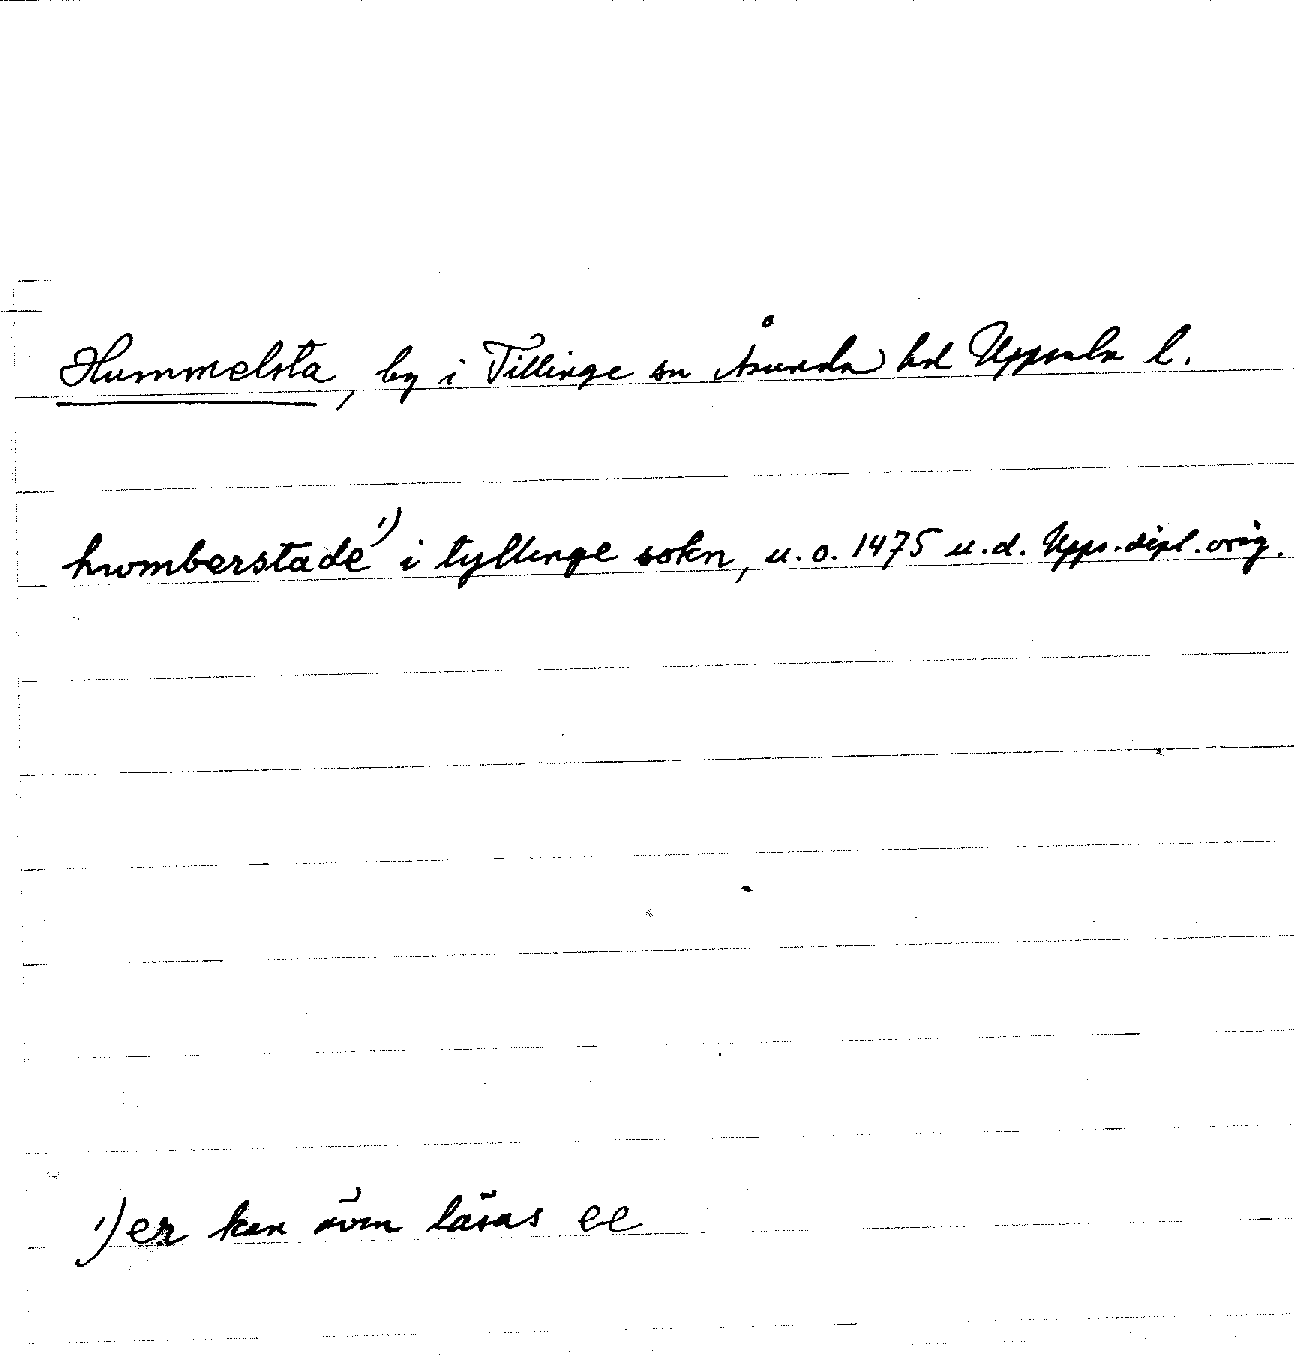 Hummelsta, by i Tillinge sn Åsunda hd Uppsala l.
hwmberstade¹⁾ i tyllinge sokn, u. o. 1475 u.d. Upps. dipl. orig.
¹⁾ er kan även läsas ee